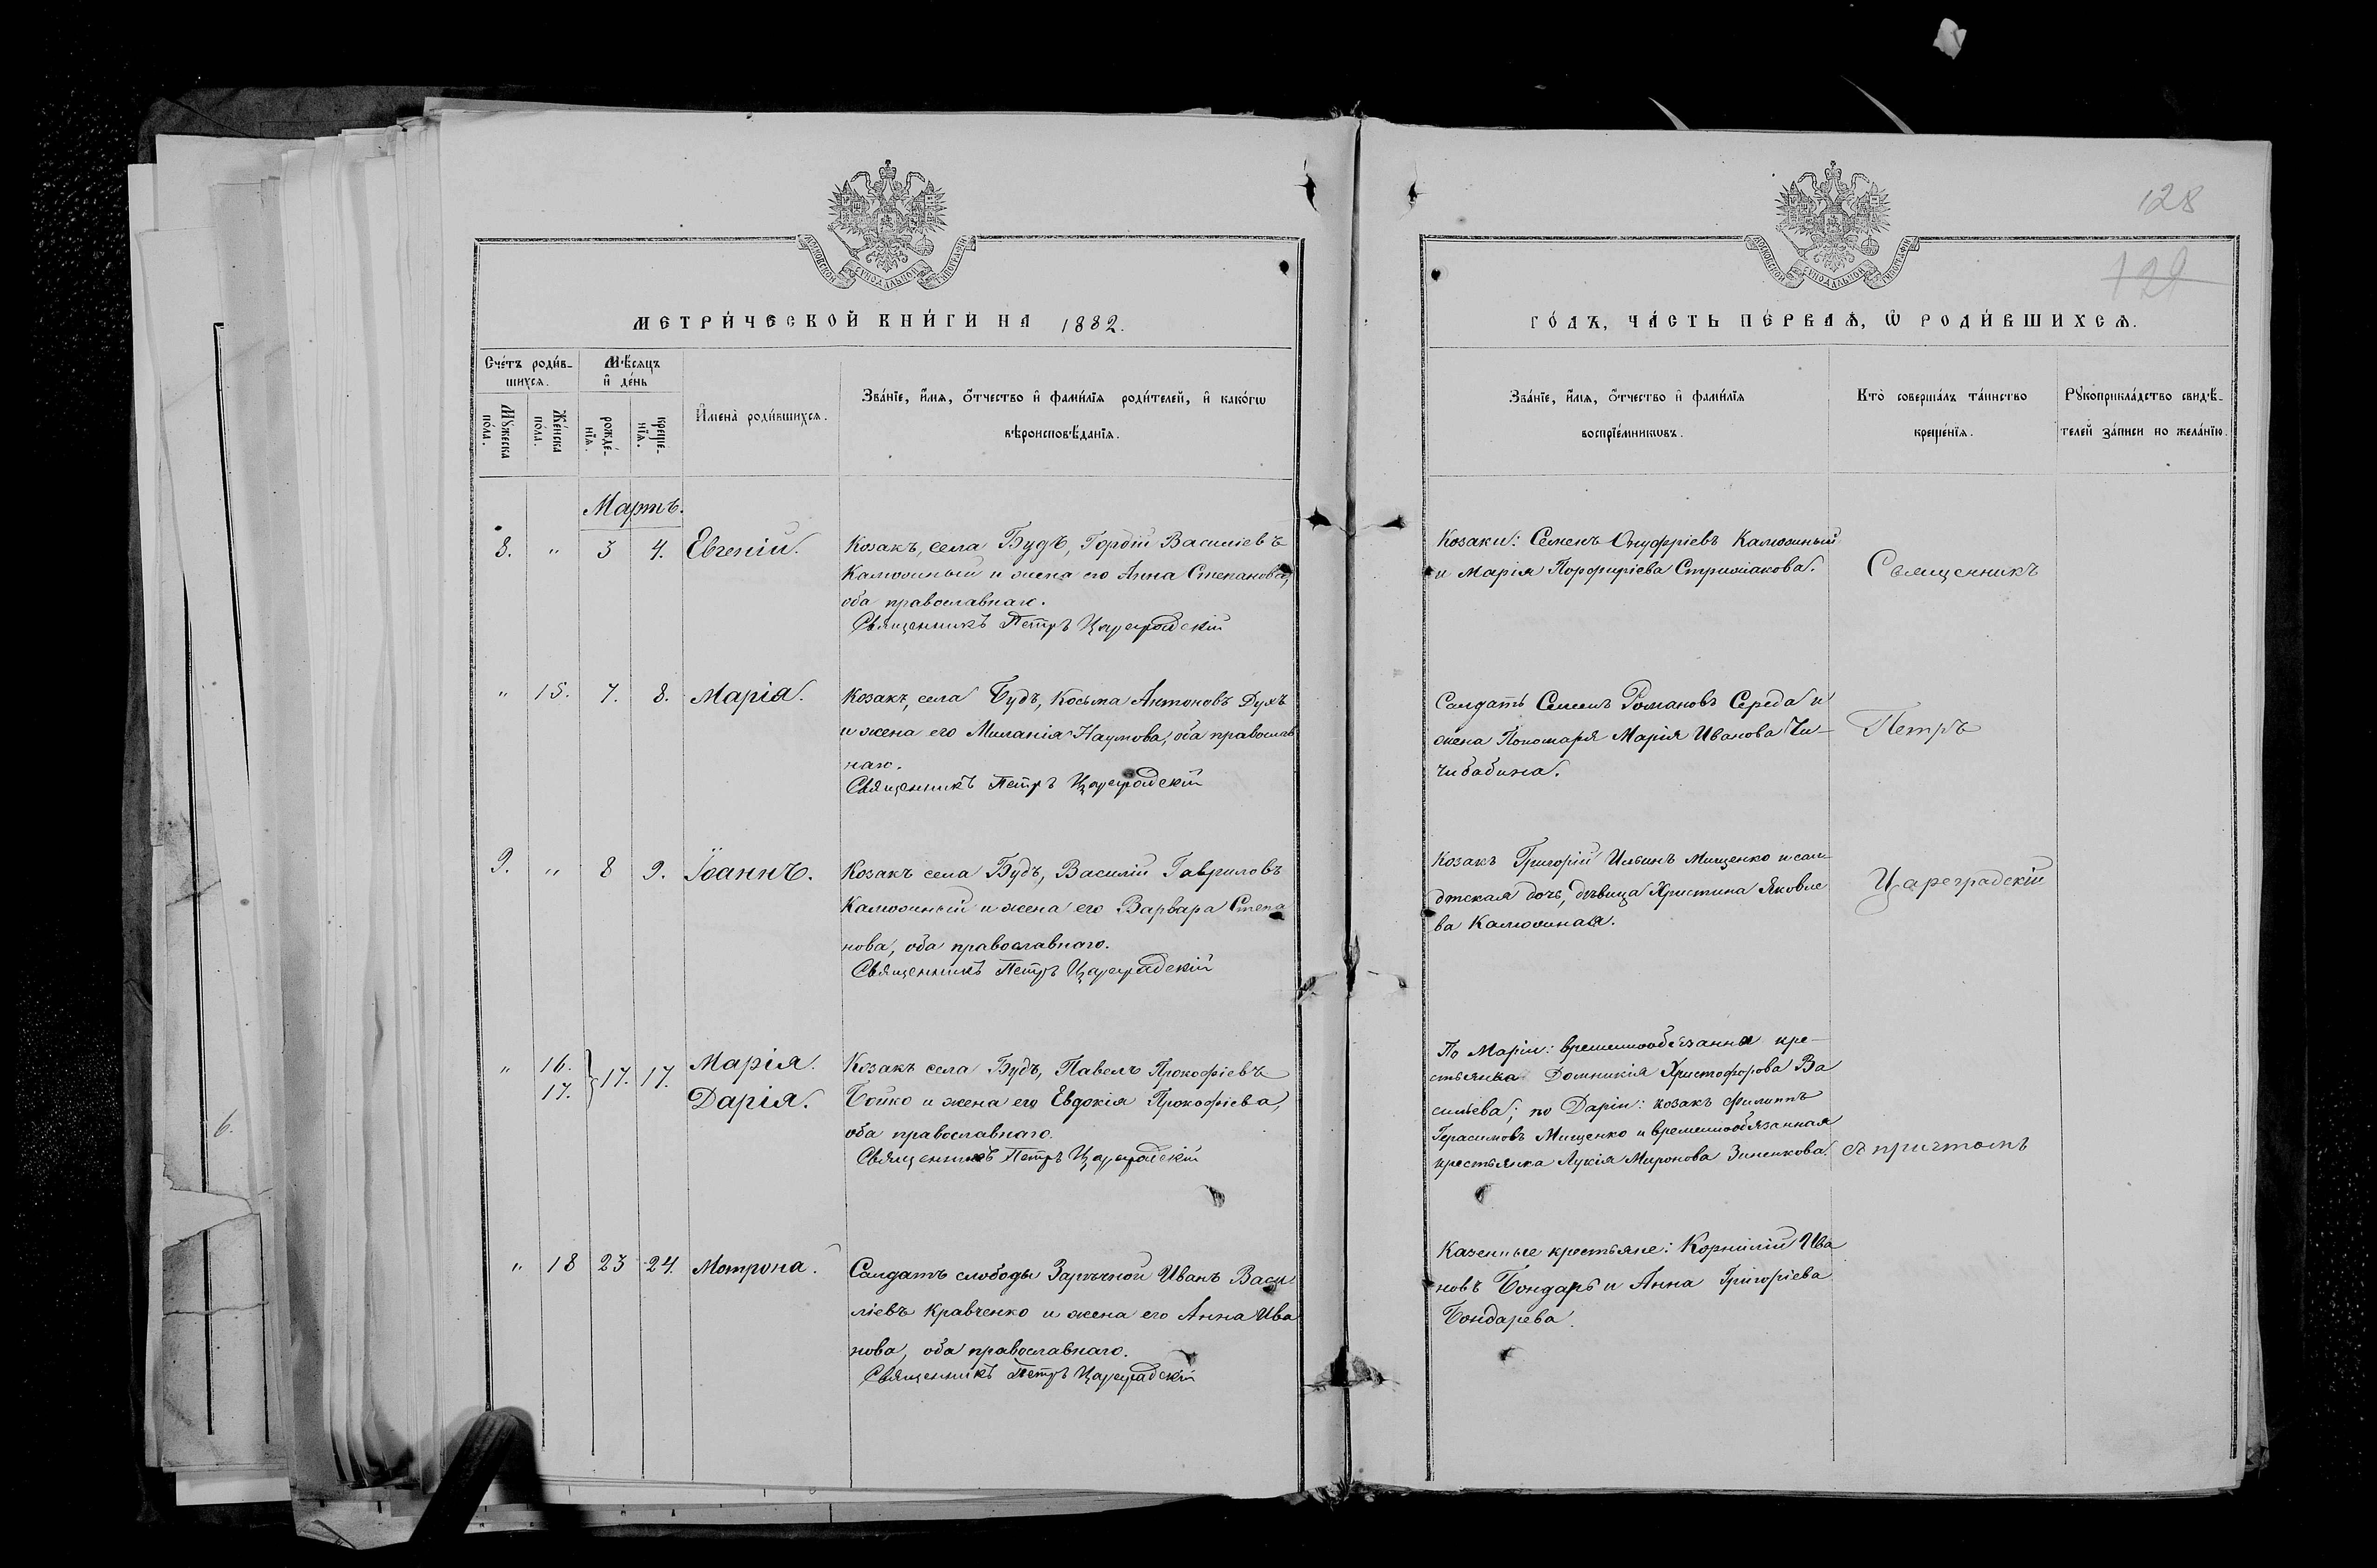 128
129
МОСКОВСКОЙ СѴНОДАЛЬНОЙ ТИПОГРАФІИ
МОСКОВСКОЙ СѴНОДАЛЬНОЙ ТИПОГРАФІИ
МЕТРИ́ЧЕСКОЙ КНИ́ГИ НА 1882.
ГО́ДЪ, ЧА́СТЬ ПЕ́РВАѦ, Ѡ РОДИ́ВШИХСѦ.
Сче́тъ роди́в-
шихсѧ.
Мꙋжеска по́ла.
Же́нска по́ла.
Мѣ́сяцъ
и҆ де́нь
рожде́-
нїѧ.
креще-
нїѧ.
И҆мена̀ роди́вшихсѧ.
Зва́нїе, и҆́мѧ, ѻ҆́тчество и҆ фами́лїѧ роди́телей, и҆ како́гѡ
вѣроисповѣ́данїѧ.
Зва́нїе, и҆́мѧ, ѻ҆́тчество и҆ фами́лїѧ
воспрїе́мникѡвъ.
Кто̀ соверша́лъ та́инство
креще́нїѧ.
Рꙋкоприкла́дство свидѣ́-
телей за́писи по жела́нїю.
Мартъ.
8. " 3 4. Евгеній.
Козакъ, села Будъ, Гордій Василіевъ
Калюжный и жена его Анна Степанова,
оба православнаго.
Священникъ Петръ Цареградскій
Козаки: Семенъ Онуфріевъ Калюжный
и Марія Порфиріева Стрижакова.
Священникъ
" 15. 7. 8. Марія.
Козакъ, села Будъ, Косьма Антоновъ Духъ
и жена его Миланія Наумова, оба православ
наго.
Священникъ Петръ Цареградскій
Солдатъ Семенъ Романовъ Середа и
жена Пономаря Марія Иванова Чи-
чибабина.
Петръ
9. " 8 9. Іоаннъ.
Козакъ села Будъ, Василій Гавриловъ
Калюжный и жена его Варвара Степа
нова, оба православнаго.
Священникъ Петръ Цареградскій
Козакъ Григорій Ильинъ Мищенко и сол
датская дочь, дѣвица Христина Яковле
ва Калюжная.
Цареградскій
" 16. 17. 17. 17. Марія.
Дарія.
Козакъ села Будъ, Павелъ Прокофіевъ
Бойко и жена его Евдокія Прокофіева,
оба православнаго.
Священникъ Петръ Цареградскій
По Маріи: временнообязанная кре-
стьянка Домникія Христофорова Ва
сильева; по Даріи: козакъ Филиппъ
Герасимовъ Мищенко и временнообязанная
крестьянка Лукія Миронова Зиненкова.
съ причтомъ
" 18 23 24. Мотрона.
Солдатъ слободы Зарѣчной Иванъ Васи
ліевъ Кравченко и жена его Анна Ива
нова, оба православнаго.
Священникъ Петръ Цареградскій
Казенные крестьяне: Корнилій Ива
новъ Бондарь и Анна Григоріева
Бондарева.
6.